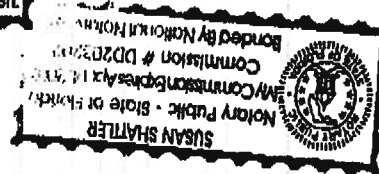 SUSAN SHATLER
Notary Public - State of Florida
My Commission Expires Apr
Commission # DD
Bonded By National Notary